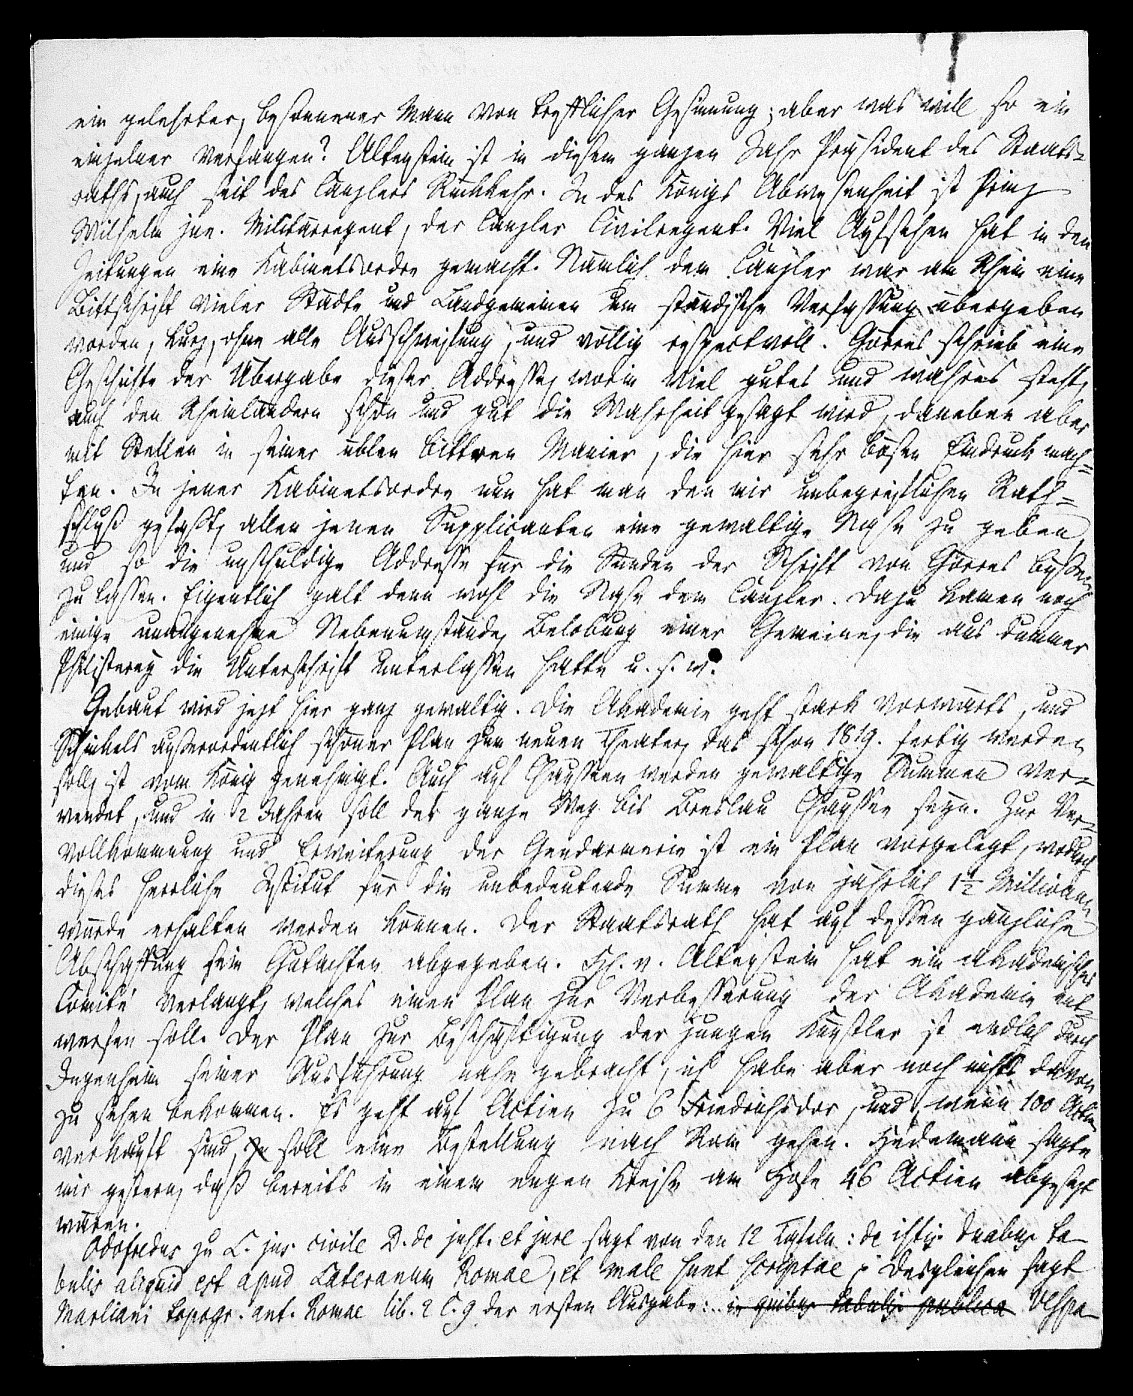 ein gelehrter, besonnener Mann von trefflicher Gesinnung; aber was will so ein
einzelner verfangen? Altenstein ist in diesem ganzen Jahr Präsident des Staats-
raths, auch seit des Canzlers Rückkehr. In des Königs Abwesenheit ist Prinz
Wilhelm jun. Militärregent, der Canzler Civilregent. Viel Aufsehen hat in den
Zeitungen eine Kabinetsordre gemacht. Nämlich dem Canzler war am Rhein eine
Bittschrift vieler Städte und Landgemeinen um ständische Verfassung übergeben
worden, kurz, ohne alle Ausschweifung, und völlig respectvoll. Görres schrieb eine
Geschichte der Übergabe dieser Addresse, worin viel gutes und wahres steht,
auch den Rheinländern schön und gut die Wahrheit gesagt wird, daneben aber
mit Stellen in seiner üblen bittren Manier, die hier sehr bösen Eindruck mach-
ten. In jener Kabinetsordre nun hat man den mir unbegreiflichen Rath-
schluß gefaßt, allen jenen Supplicanten eine gewaltige Nase zu geben,
und so die unschuldige Addresse für die Sünden der Schrift von Görres büßen
zu lassen. Eigentlich galt denn wohl die Nase dem Canzler. Dazu kamen noch
einige unangenehme Nebenumstände, Belobung einer Gemeine, die aus dummer
Philisterey die Unterschrift unterlassen hatte u. s. w.
Gebaut wird jezt hier ganz gewaltig. Die Akademie geht stark vorwärts, und
Schinkels außerordentlich schöner Plan zum neuen Theater, das schon 1819. fertig werden
soll, ist vom König genehmigt. Auch auf Chausseen werden gewaltige Summen ver-
wendet, und in 2 Jahren soll der ganze Weg bis Breslau Chaussee seyn. Zur Ver-
vollkommnung und Erweiterung der Gendarmerie ist ein Plan vorgelegt, wodurch
dieses herrliche Institut für die unbedeutende Summe von jährlich 1½ Millionen
würde erhalten werden können. Der Staatsrath hat auf dessen gänzliche
Abschaffung sein Gutachten abgegeben. H. v. Altenstein hat ein akademisches
Comité verlangt, welches einen Plan zur Verbesserung der Akademie ent-
werfen soll. Der Plan zur Beschäftigung der jungen Künstler ist endlich durch
Ingenheim seiner Ausführung nahe gebracht, ich habe aber noch nichts davon
zu sehen bekommen. Es geht auf Actien zu 6 Friedrichsdor, und wenn 100 Actien
verkauft sind, so soll eine Bestellung nach Rom gehen. Hedemann sagte
mir gestern, daß bereits in einem engen Kreise am Hofe 46 Actien abgesezt
wären.
Odofredus zu L. jus civile D. de just. et jure sagt von den 12 Tafeln: de istis duabus ta-
bulis aliquid est apud Lateranum Romae, et male sunt scriptae. Desgleichen sagt
Marliani topogr. ant. Romae lib. 2 C. 9 der ersten Ausgabe: in quibus tabulis publica Vespa-